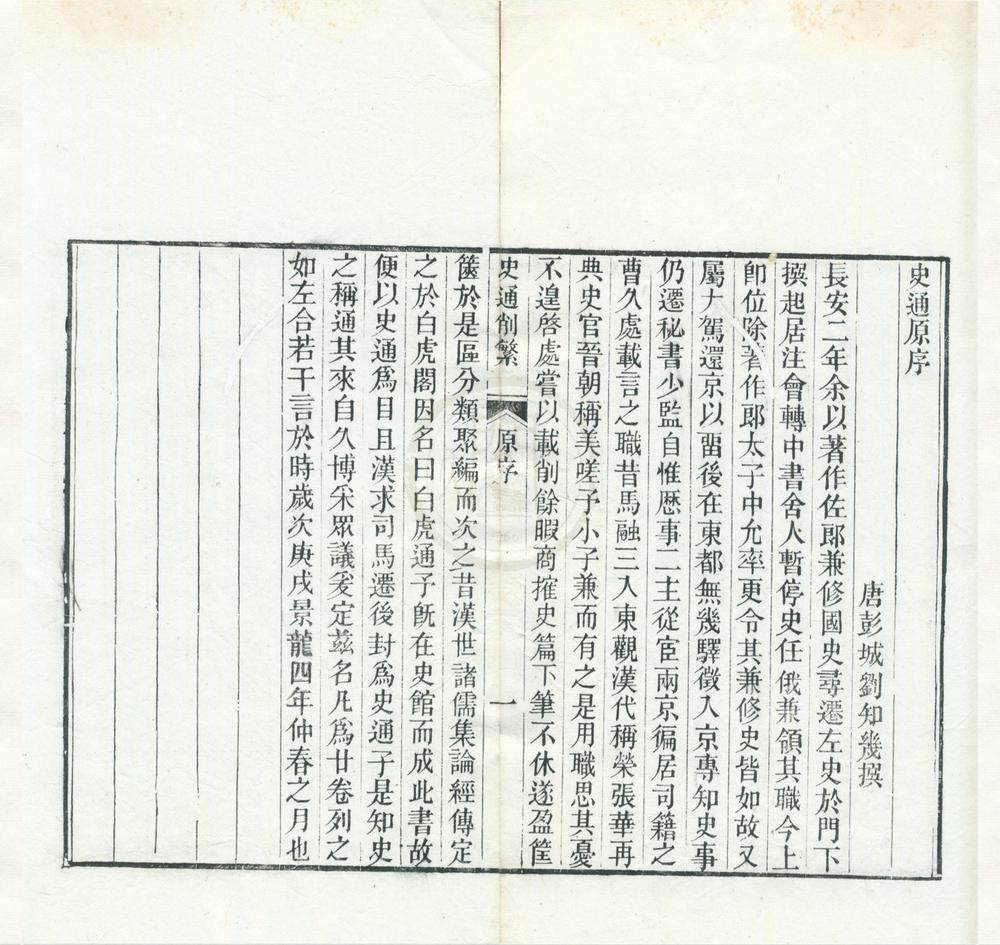 史通原序
唐彭城劉知幾撰
長安二年余以著作佐郎兼修國史尋遷左史於門下
撰起居注會轉中書舍人暫停史任俄兼領其職今上
卽位除著作郎太子中允率更令其兼修史皆如故又
屬大駕還京以畱後在東都無幾驛徵入京專知史事
仍遷秘書少監自惟歷事二主從宦兩京徧居司籍之
曹久處載言之職昔馬融三入東觀漢代稱榮張華再
典史官晉朝稱美嗟予小子兼而有之是用職思其憂
不遑啓處嘗以載削餘暇商搉史篇下筆不休遂盈筐
史通削繁
原序
一
篋於是區分類聚編而次之昔漢世諸儒集論經傳定
之於白虎閣因名曰白虎通予旣在史館而成此書故
便以史通爲目且漢求司馬遷後封爲史通子是知史
之稱通其來自久博采眾議爰定茲名凡爲廿卷列之
如左合若干言於時歲次庚戌景龍四年仲春之月也